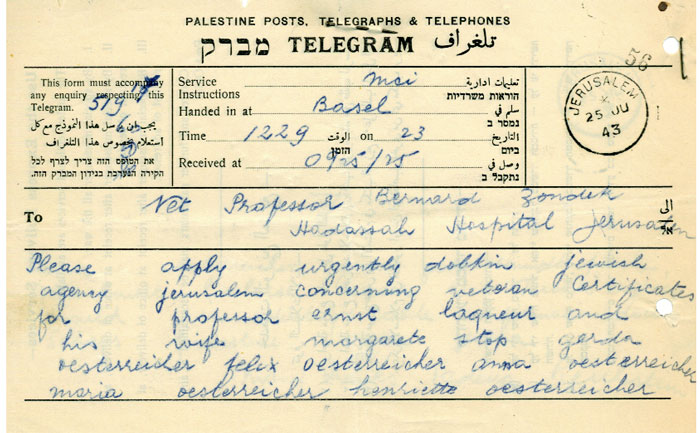 PALESTINE POSTS, TELEGRAPHS & TELEPHONES
מברק TELEGRAM تلغراف
56
This form must accompany
any enquiry respecting this
Telegram.
519
يجب ان يوصل هذا النموذج مع كل
استعلام بخصوص هذا التلغراف
את הטופס הזה צריך לצרף לכל
חקירה הנערכת בנידון המברק הזה.
Service
Instructions
mci
تعليمات ادارية
הוראות משרדיות
Handed in at Basel
سلم في
נמסר ב
Time 1229 الوقت on 23 التاريخ
הזמן ביום
Received at 0925/25
وصل في
נתקבל ב
JERUSALEM
25 JU
43
To
الى
אל
Professor Bernard Zondek
Hadassah Hospital Jerusalem
Please apply urgently dobkin jewish
agency jerusalem concerning veteran certificates
for professor ernst laqueur and
his wife margarete stop gerda
oesterreicher felix oesterreicher anna oesterreicher
maria oesterreicher henriette oesterreicher